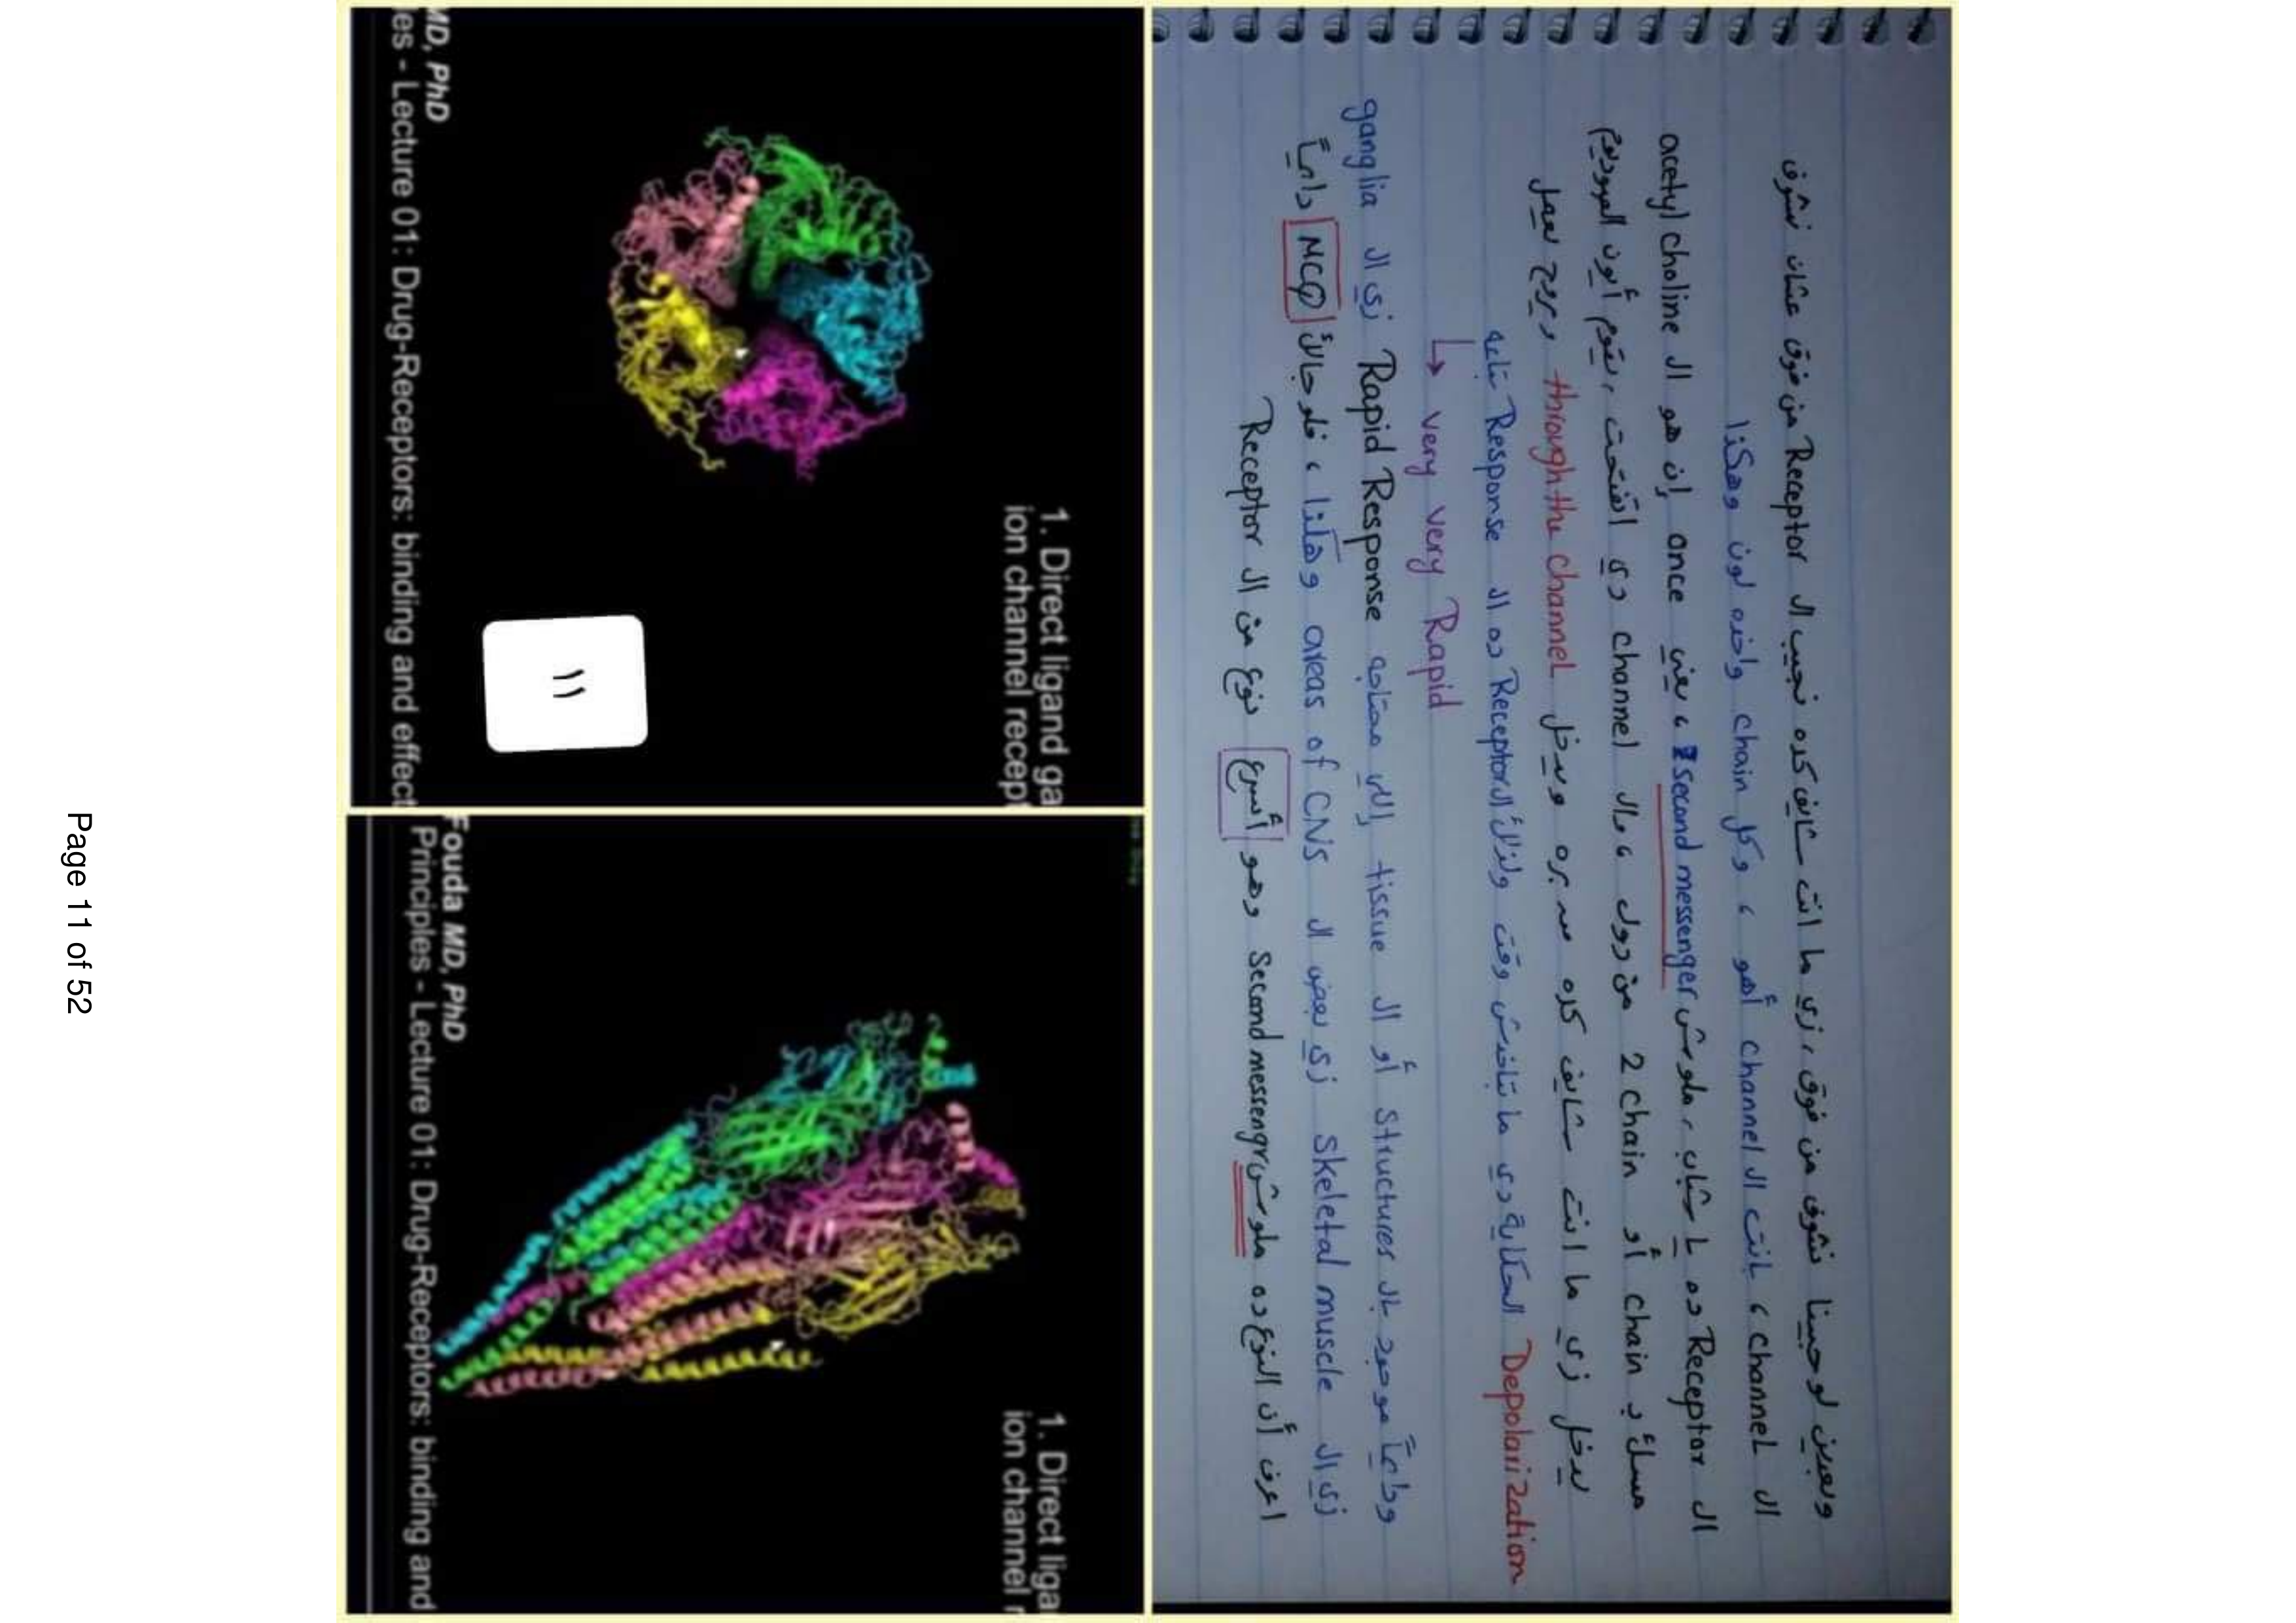 وبعدين لو حبينا نشوف من فوق، زي ما انت شايف كده نجيب ال Receptor من فوق عشان نشوف
ال channel ، بانت ال channel أهو ، وكل chain واخده لون وهكذا
ال Receptor ده يا شباب، ملوش second messenger ، يعني once إن هو ال acetyl choline
مسك بـ chain أو 2 chain من دول ، وال channel دي اتفتحت، يقوم أيون الصوديوم
يدخل زي ما انت شايف كده من بره ويدخل through the channel ويروح يعمل
Depolarization الحكاية دي ما تاخدش وقت ولذلك ال Receptor ده ال Response بتاعه
↳ very very Rapid
ودايماً موجود بال structures أو ال tissue إللي محتاجه Rapid Response زي ال ganglia
زي ال skeletal muscle زي بعض ال areas of CNS وهكذا ، فلو جالك MCQ دايماً
اعرف أن النوع ده ملوش second messenger وهو أسرع نوع من ال Receptor
1. Direct ligand ga
ion channel recept
١١
MD, PhD
es - Lecture 01: Drug-Receptors: binding and effect
1. Direct liga
ion channel r
Fouda MD, PhD
Principles - Lecture 01: Drug-Receptors: binding and
Page 11 of 52